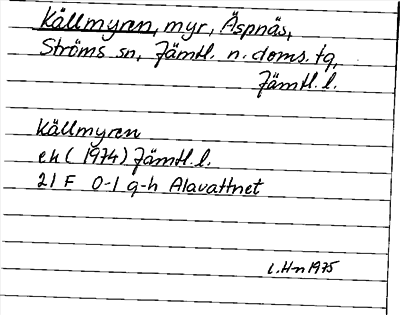 Källmyren, myr, Äspnäs,
Ströms sn, Jämtl. n. doms. tg,
Jämtl. l.
Källmyren
ek (1974) Jämtl. l.
21 F 0-1 g-h Alavattnet
L.Hn 1975